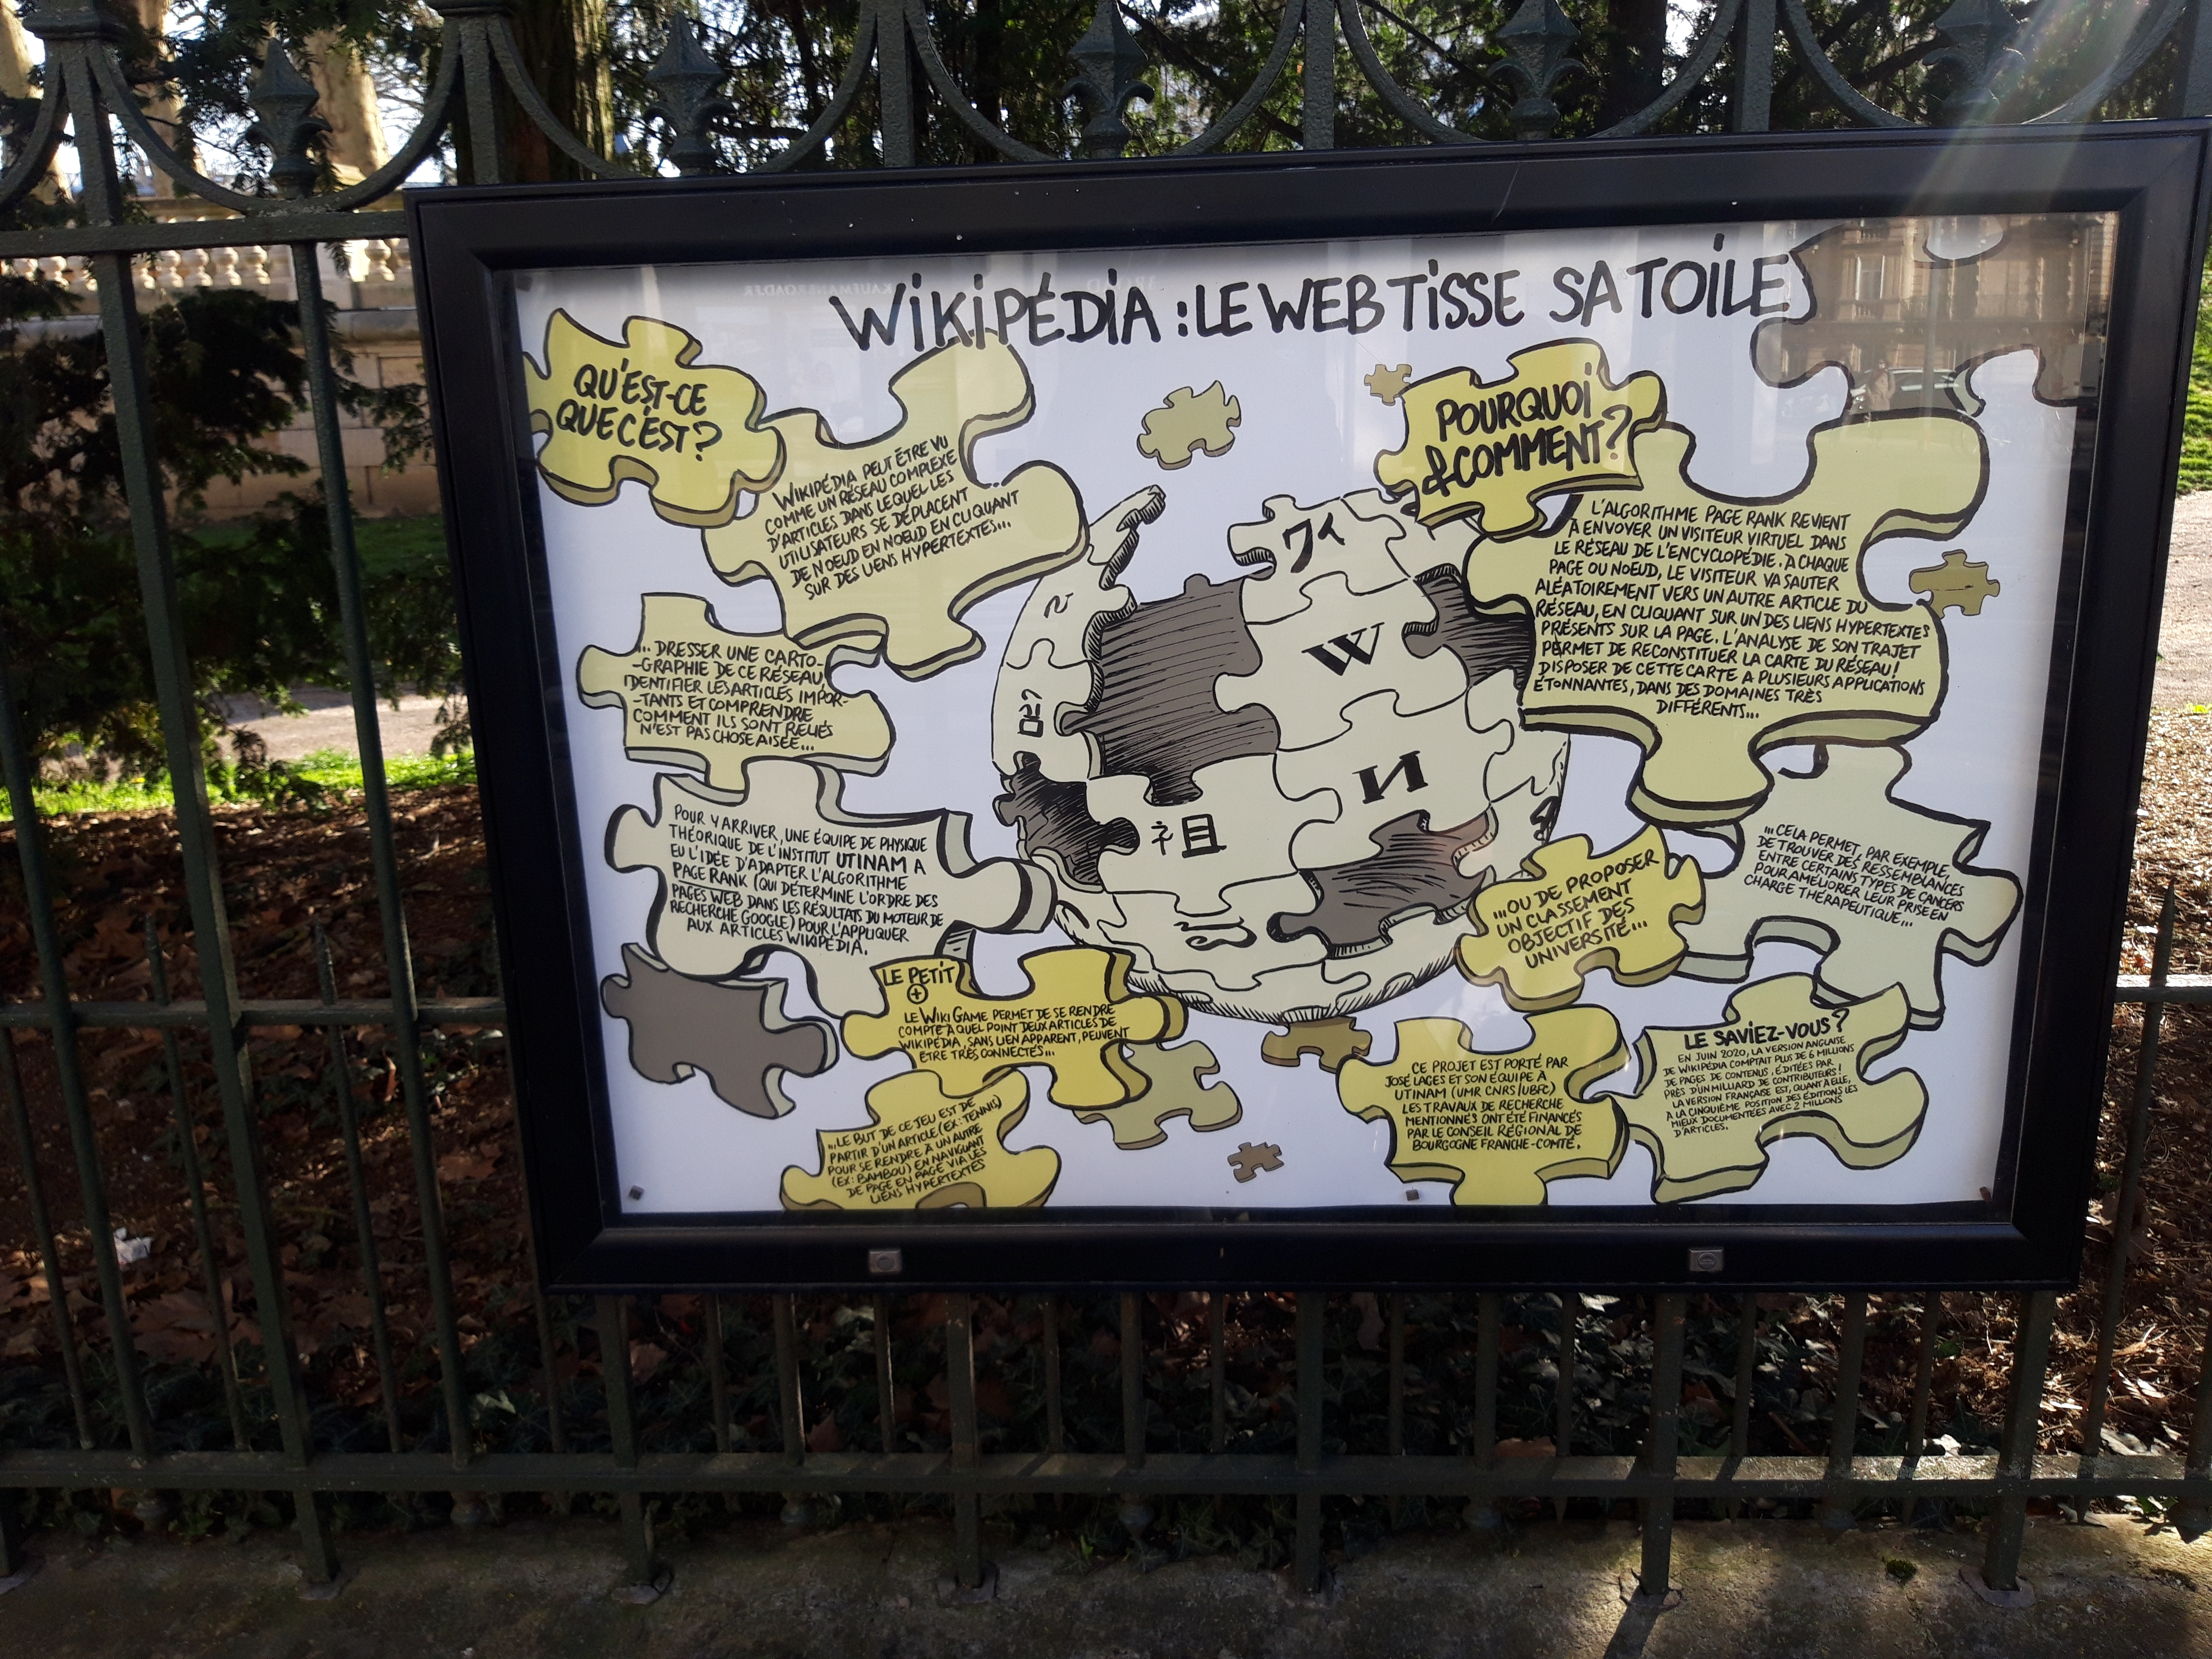 WIKIPÉDIA : LE WEB TISSE SA TOILE
QU'EST-CE
QUE C'EST ?
WIKIPÉDIA PEUT ÊTRE VU
COMME UN RÉSEAU COMPLEXE
D'ARTICLES DANS LEQUEL LES
UTILISATEURS SE DÉPLACENT
DE NOEUD EN NOEUD EN CLIQUANT
SUR DES LIENS HYPERTEXTES...
... DRESSER UNE CARTO-
-GRAPHIE DE CE RÉSEAU,
IDENTIFIER LES ARTICLES IMPOR-
-TANTS ET COMPRENDRE
COMMENT ILS SONT RELIÉS
N'EST PAS CHOSE AISÉE...
POUR Y ARRIVER, UNE ÉQUIPE DE PHYSIQUE
THÉORIQUE DE L'INSTITUT UTINAM A
EU L'IDÉE D'ADAPTER L'ALGORITHME
PAGE RANK (QUI DÉTERMINE L'ORDRE DES
PAGES WEB DANS LES RÉSULTATS DU MOTEUR DE
RECHERCHE GOOGLE) POUR L'APPLIQUER
AUX ARTICLES WIKIPÉDIA.
LE PETIT
+
LE WIKI GAME PERMET DE SE RENDRE
COMPTE À QUEL POINT DEUX ARTICLES DE
WIKIPÉDIA, SANS LIEN APPARENT, PEUVENT
ÊTRE TRÈS CONNECTÉS...
...LE BUT DE CE JEU EST DE
PARTIR D'UN ARTICLE (EX : TENNIS)
POUR SE RENDRE À UN AUTRE
(EX : BAMBOU) EN NAVIGUANT
DE PAGE EN PAGE VIA LES
LIENS HYPERTEXTES
ワィ
W
И
祖
POURQUOI
& COMMENT ?
L'ALGORITHME PAGE RANK REVIENT
À ENVOYER UN VISITEUR VIRTUEL DANS
LE RÉSEAU DE L'ENCYCLOPÉDIE. À CHAQUE
PAGE OU NOEUD, LE VISITEUR VA SAUTER
ALÉATOIREMENT VERS UN AUTRE ARTICLE DU
RÉSEAU, EN CLIQUANT SUR UN DES LIENS HYPERTEXTES
PRÉSENTS SUR LA PAGE. L'ANALYSE DE SON TRAJET
PERMET DE RECONSTITUER LA CARTE DU RÉSEAU !
DISPOSER DE CETTE CARTE A PLUSIEURS APPLICATIONS
ÉTONNANTES, DANS DES DOMAINES TRÈS
DIFFÉRENTS...
...CELA PERMET, PAR EXEMPLE,
DE TROUVER DES RESSEMBLANCES
ENTRE CERTAINS TYPES DE CANCERS
POUR AMÉLIORER LEUR PRISE EN
CHARGE THÉRAPEUTIQUE...
...OU DE PROPOSER
UN CLASSEMENT
OBJECTIF DES
UNIVERSITÉ...
CE PROJET EST PORTÉ PAR
JOSÉ LAGES ET SON ÉQUIPE À
UTINAM (UMR CNRS/UBFC)
LES TRAVAUX DE RECHERCHE
MENTIONNÉS ONT ÉTÉ FINANCÉS
PAR LE CONSEIL RÉGIONAL DE
BOURGOGNE FRANCHE-COMTÉ.
LE SAVIEZ-VOUS ?
EN JUIN 2020, LA VERSION ANGLAISE
DE WIKIPÉDIA COMPTAIT PLUS DE 6 MILLIONS
DE PAGES DE CONTENUS, ÉDITÉES PAR
PRÈS D'UN MILLIARD DE CONTRIBUTEURS !
LA VERSION FRANÇAISE EST, QUANT À ELLE,
À LA CINQUIÈME POSITION DES ÉDITIONS LES
MIEUX DOCUMENTÉES AVEC 2 MILLIONS
D'ARTICLES.